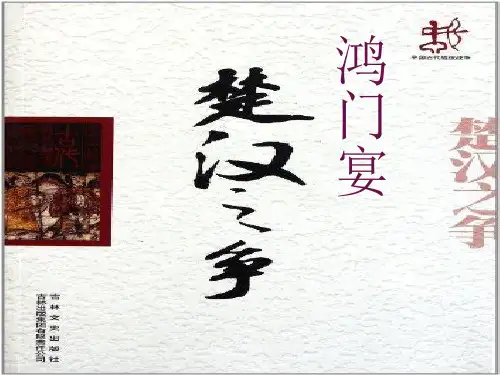 鸿门宴
楚汉之争
楚汉之争
吉林文史出版社
吉林出版集团有限责任公司